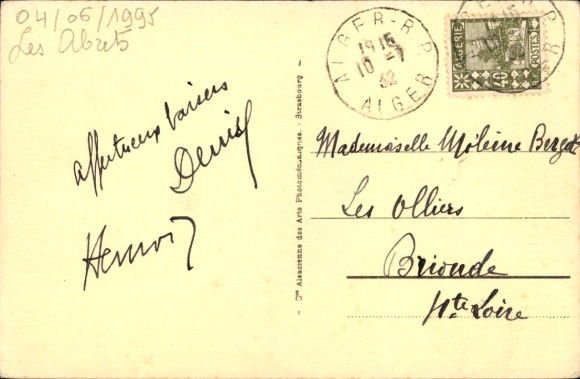 04/06/1995
Les Abrets
affectueux baisers
Denise
Cie Alsacienne des Arts Photomécaniques. - Strasbourg
ALGER-R.P.
1915
10 -7
32
ALGER
ALGERIE
40
POSTES
Mademoiselle
Les Olliers
Brioude
Hte Loire